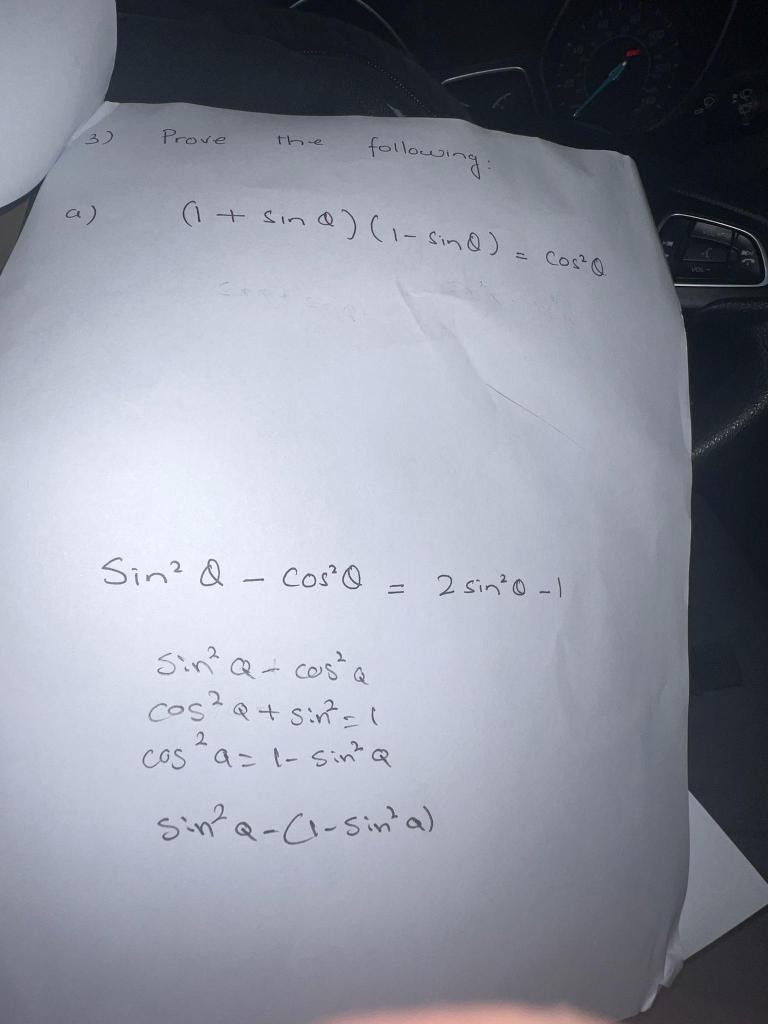 3) Prove the following:
a) (1 + sin θ) (1 - sin θ) = cos²θ
Sin² θ - cos²θ = 2 sin²θ - 1
sin² θ - cos² θ
cos² θ + sin² = 1
cos² θ = 1 - sin² θ
sin² θ - (1 - sin² θ)
VOL-